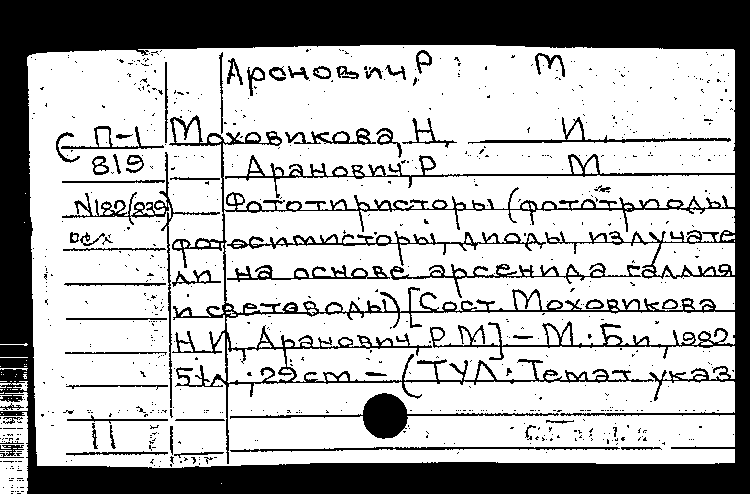 Аронович, Р М
С П-1 Моховикова, Н. И.
819 Аранович, Р М
N182(839) Фототиристоры (фототриоды
фотосимисторы, диоды, излучате
ли на основе арсенида галлия
и световоды) [Сост. Моховикова
Н.И., Аранович, Р.М] – М.: Б.и, 1982
51л.; 29 cm. – (ТУЛ: Темат. указ
11